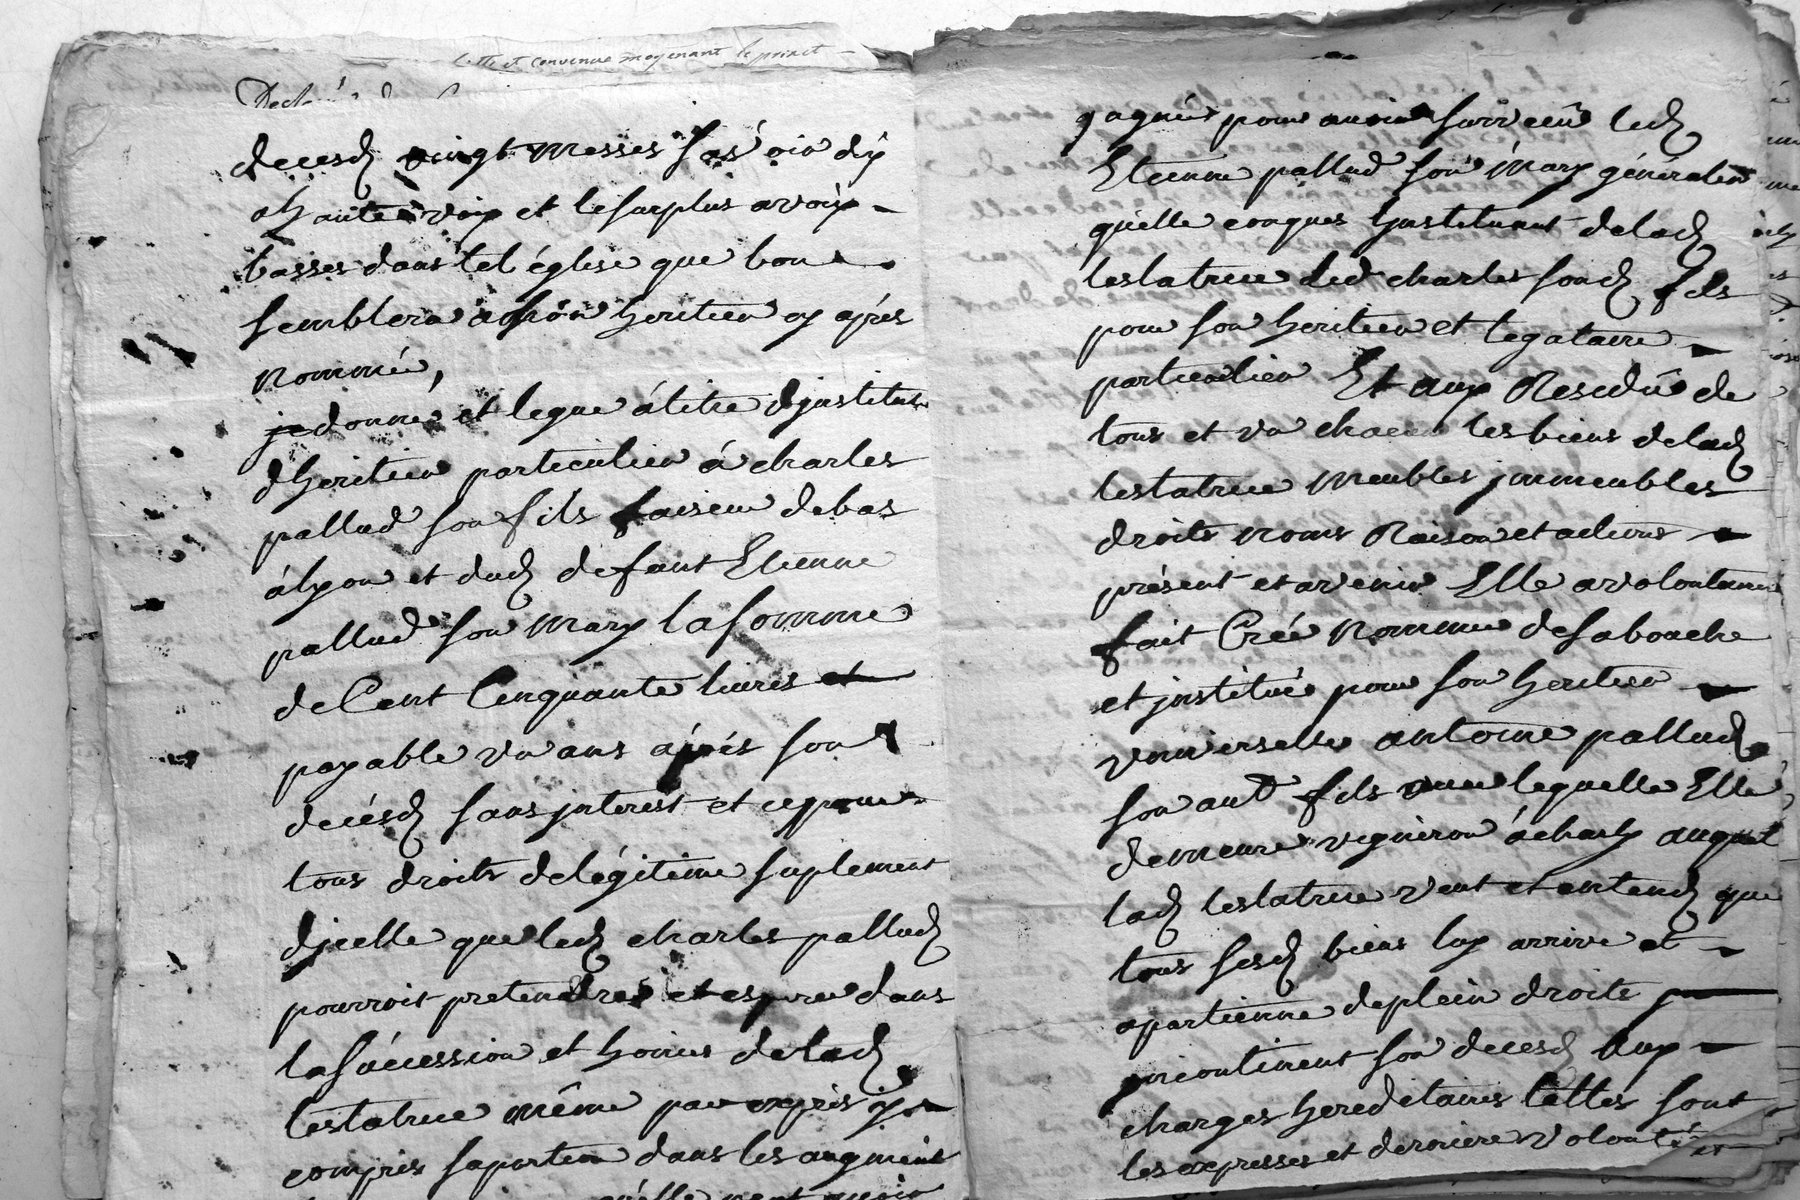 et convenue moyenant le prix et
decesd vingt messes sasvoir dix
a hautes voix et le surplus a voix
basses dans tel église que bon
semblera a son heritier cy après
nommé,
je donne et legue á titre djnstitu
dheritier particulier á charles
pallud son fils faiseur de bas
á lyon et dud defunt Etienne
pallud son mary la somme
de Cent Cinquante livres et
payable un ans aprés son
décésd sans jnterest et ce pour
tous droits de légitime suplement
djcelle que led charles pallud
pourroit pretendre et esperer dans
la súccession et hoirie de lad
testatrice même par exprès y
compris sa portion dans les augment
qu'elle peut avoir
gagnés pour avoir survecu led
Etienne pallud son mary généralem
quelle conques jnstituant de lad
testatrice led charles sond fils
pour son heritier et legataire
particulier Et aux Residu de
tous et un chacun les biens de lad
testatrice meubles jmmeubles
droits noms Raison et actions
présent et avenir Elle a volontaire
fait Créé nommé de sa bouche
et jnstitué pour son heritier
universelle antoine pallud
son aut fils avec lequelle Elle
demeure vigneron á charly auquel
lad testatrice veut et entend que
tous sesd biens luy arrive et
apartienne de plein droits
jncontinent son decesd aux
charges hereditaires telles sont
les expresses et derniere volontés et